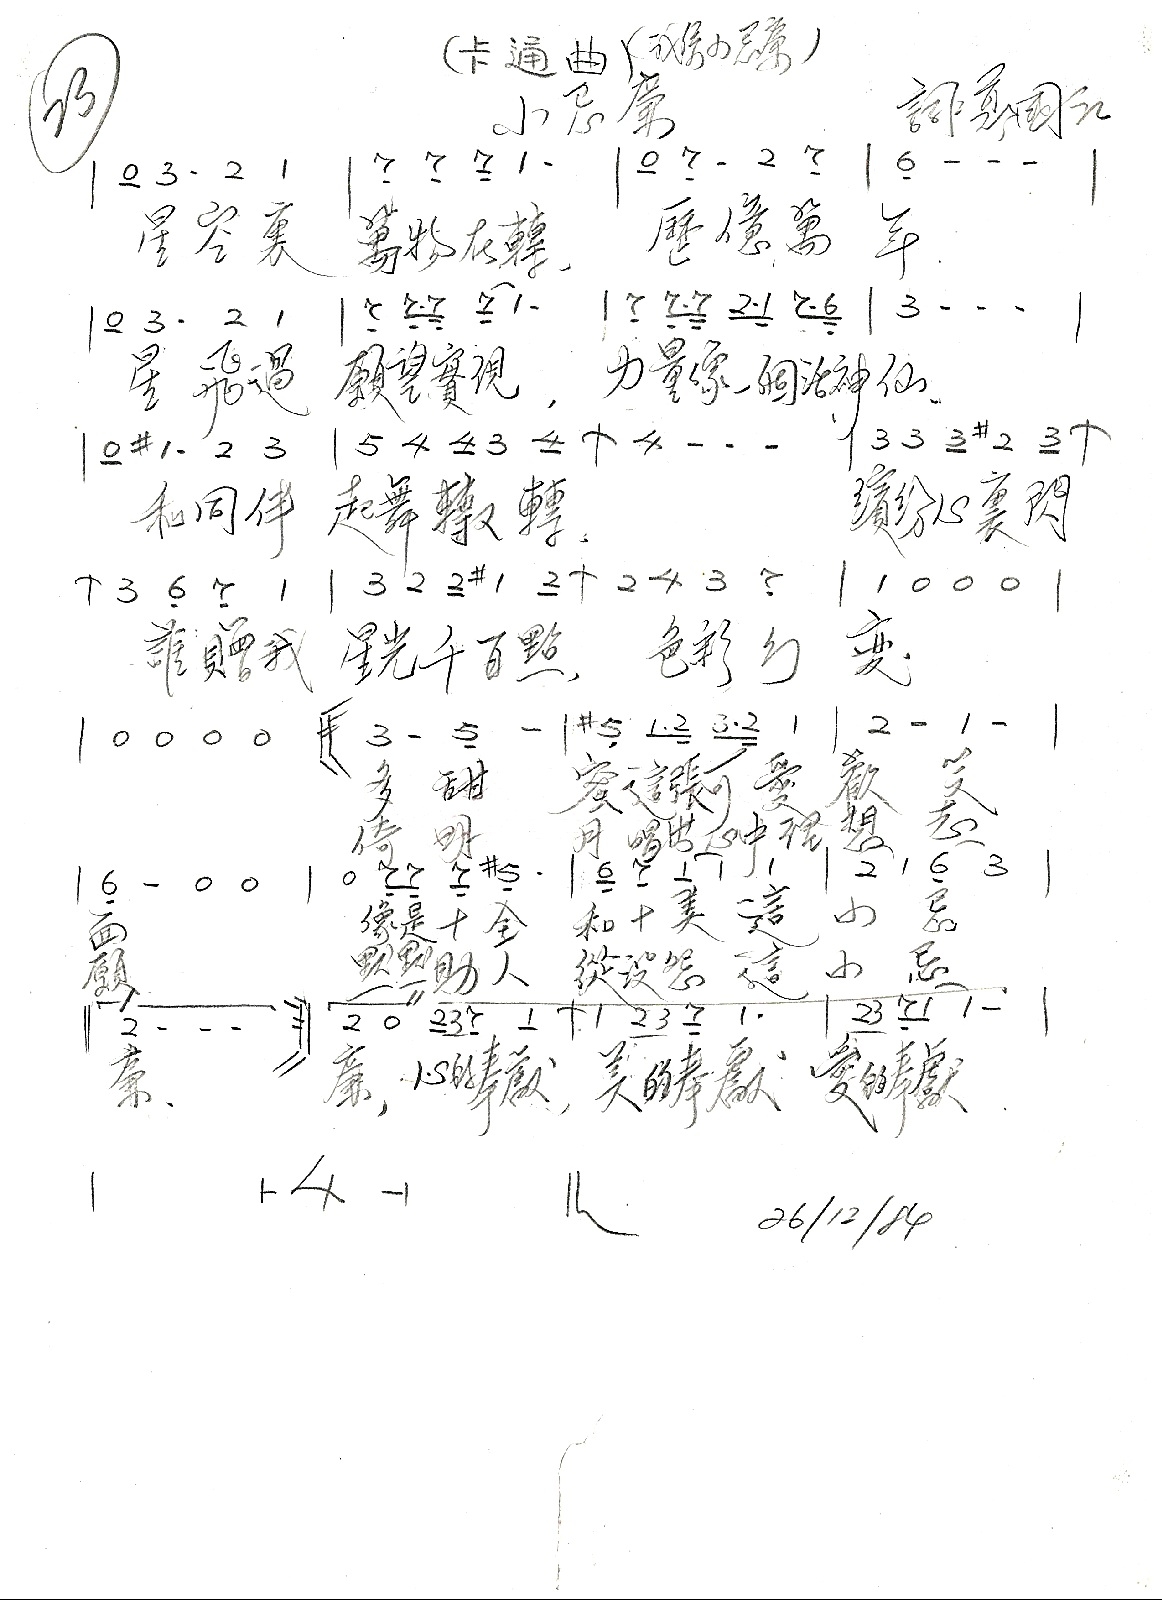 (卡通曲)
小忌廉
詞鄭國江
| 0 3 · 2 1 | 7 7 7 1 · | 0 7 · 2 7 | 6 - - - |
星空裏 萬物在轉, 歷億萬年
| 0 3 · 2 1 | 7 7·7 7 1 · | 7 7·7 2·1 7·6 | 3 - - - |
星飛過 願望實現, 力量像一個活神仙、
| 0 #1 · 2 3 | 5 4 4 3 4 ↑ 4 - - - | 3 3 3 #2 3 ↑
和同伴 起舞轉又轉、 繽紛心裏閃
↑ 3 6 7 1 | 3 2 2 #1 2 ↑ 2 4 3 7 | 1 0 0 0 |
誰贈我 星光千百點、 色彩幻變
| 0 0 0 0 3 - 5 - | #5 1·2 3·2 1 | 2 - 1 - |
多甜蜜這張可愛歡笑
倚明月唱出心中理想志
| 6 - 0 0 | 0 7 7 7 #5 · | 6 7 1 1 1 | 2 1 6 3 |
面 像是十全和十美這小忌
願 點點助人從沒怨這小忌
2 - - - 2 0 2 3 7 1 ↑ 1 2 3 7 1 · | 2 3 7 1 1 - |
廉、 廉, 心的奉獻, 美的奉獻 愛的奉獻
| 4 ‖
26/12/84